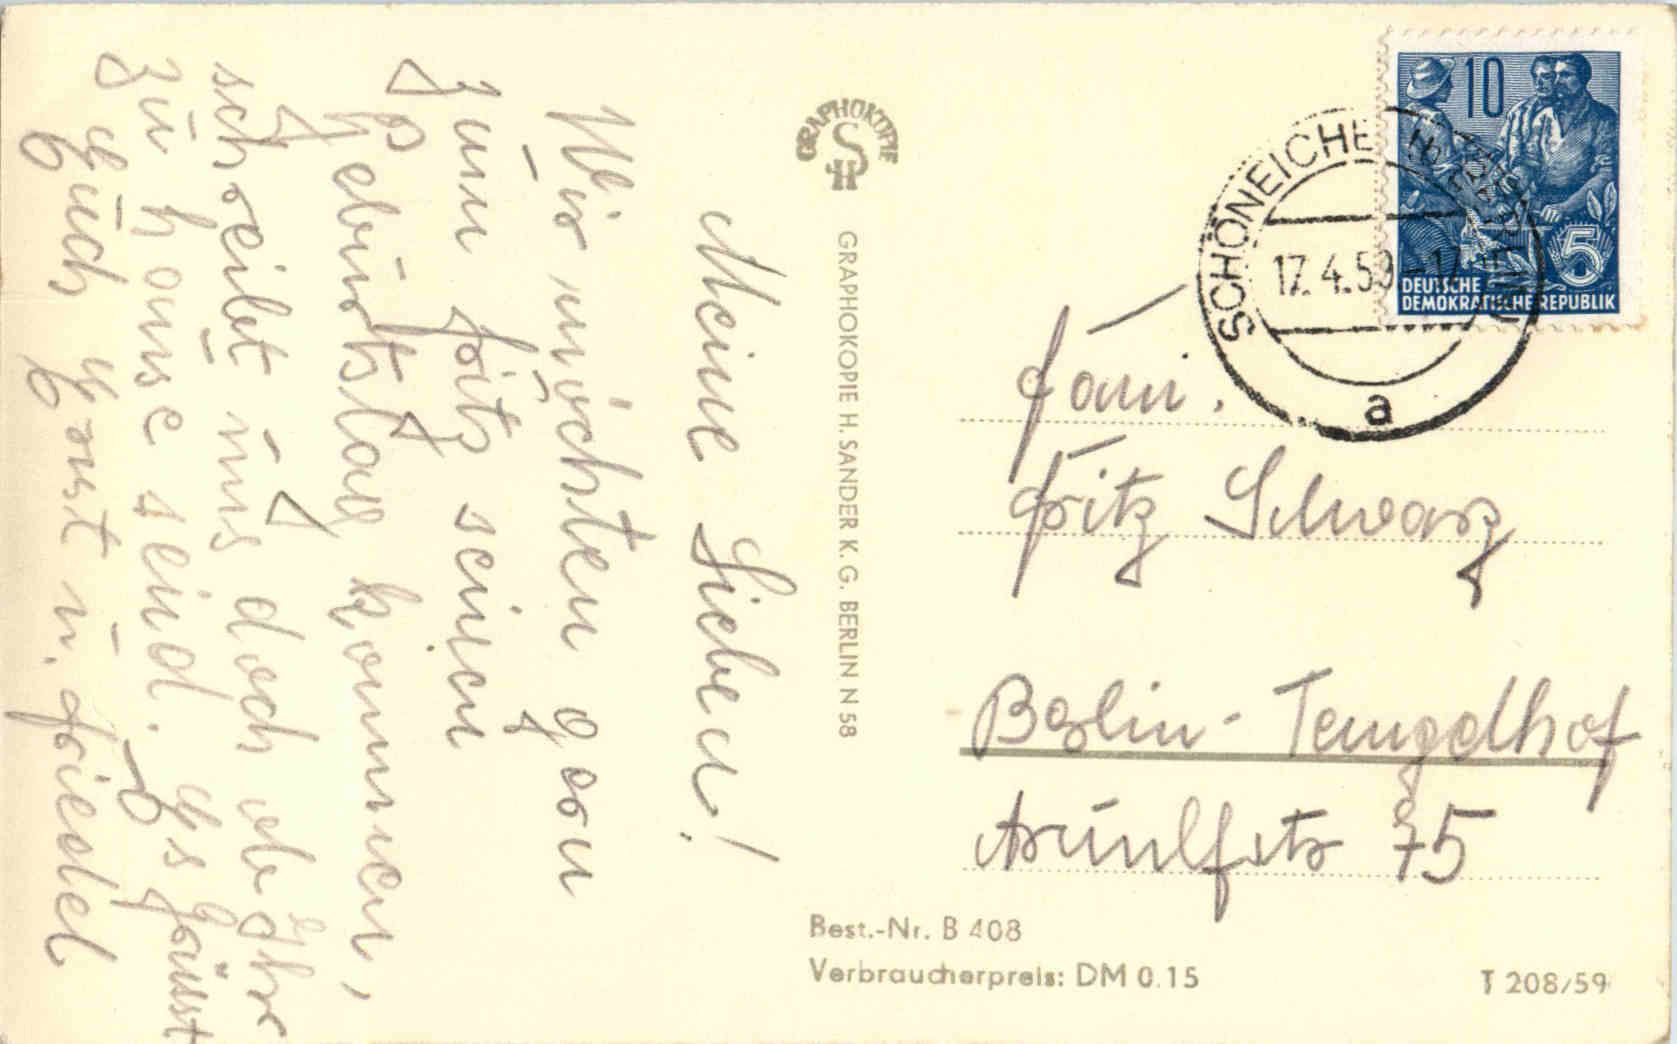 Meine Lieben!
Wir möchten gern
zum Fritz seinem
Geburtstag kommen,
schreibt uns doch ob Ihr
zu hause seid. Es grüsst
Euch Horst u. Friedel
GRAPHOKOPIE
H S
GRAPHOKOPIE H. SANDER K. G. BERLIN N 58
10
5
DEUTSCHE
DEMOKRATISCHE REPUBLIK
SCHÖNEICHE
17.4.59
a
Fam.
Fritz Schwarz
Berlin-Tempelhof
Arnulfstr 75
Best.-Nr. B 408
Verbraucherpreis: DM 0.15
T 208/59